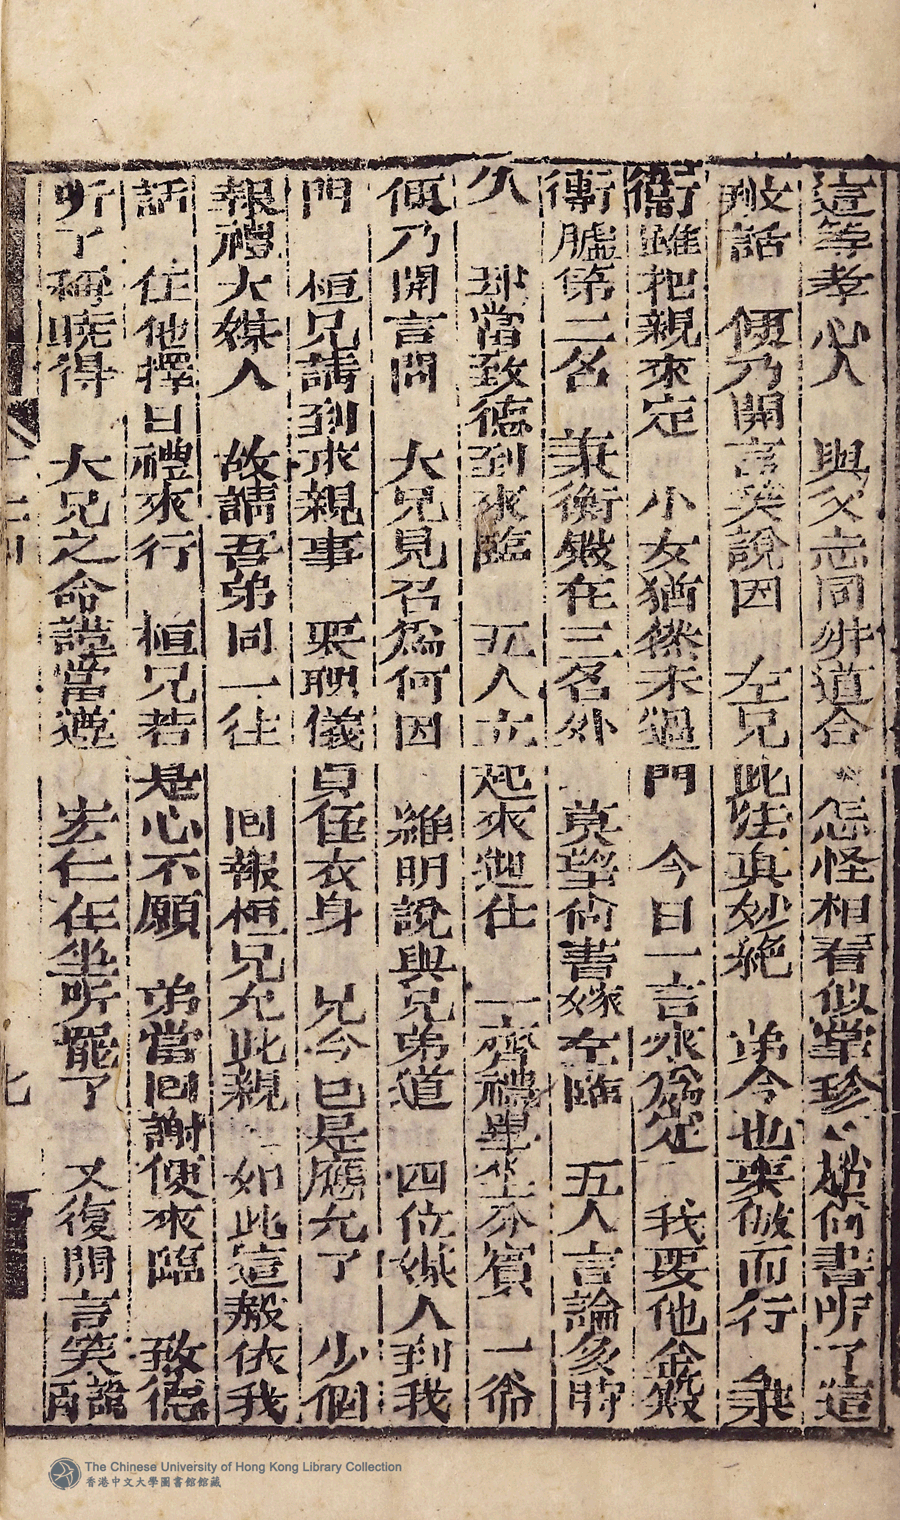 這等孝心人 與父志同幷道合 怎怪相看似掌珍 趙尙書听了這
般話 便乃開言笑說因 左兄此法真妙絶 弟今也要倣而行 秉
衡雖把親來定 小女猶然未過門 今日一言來爲定 我要他金殿
衝臚第二名 秉衡殿在三名外 莫望尙書嫁左臨 五人言論多時
久 當致德到來臨 五人立起來迎仕 一齊禮畢坐來賓 一爺
便乃開言問 大兄見召爲何因 維明說與兄弟道 四位媒人到我
門 恒兄請到求親事 要聘儀貞侄衣身 兄今已是應允了 少個
報禮大媒人 故請吾弟同一往 回報桓兄允此親 如此這般依我
話 任他擇日禮來行 桓兄若是心不願 弟當回謝便來臨 致德
听了稱曉得 大兄之命謹當遵 宏仁在坐听罷了 又復開言笑說